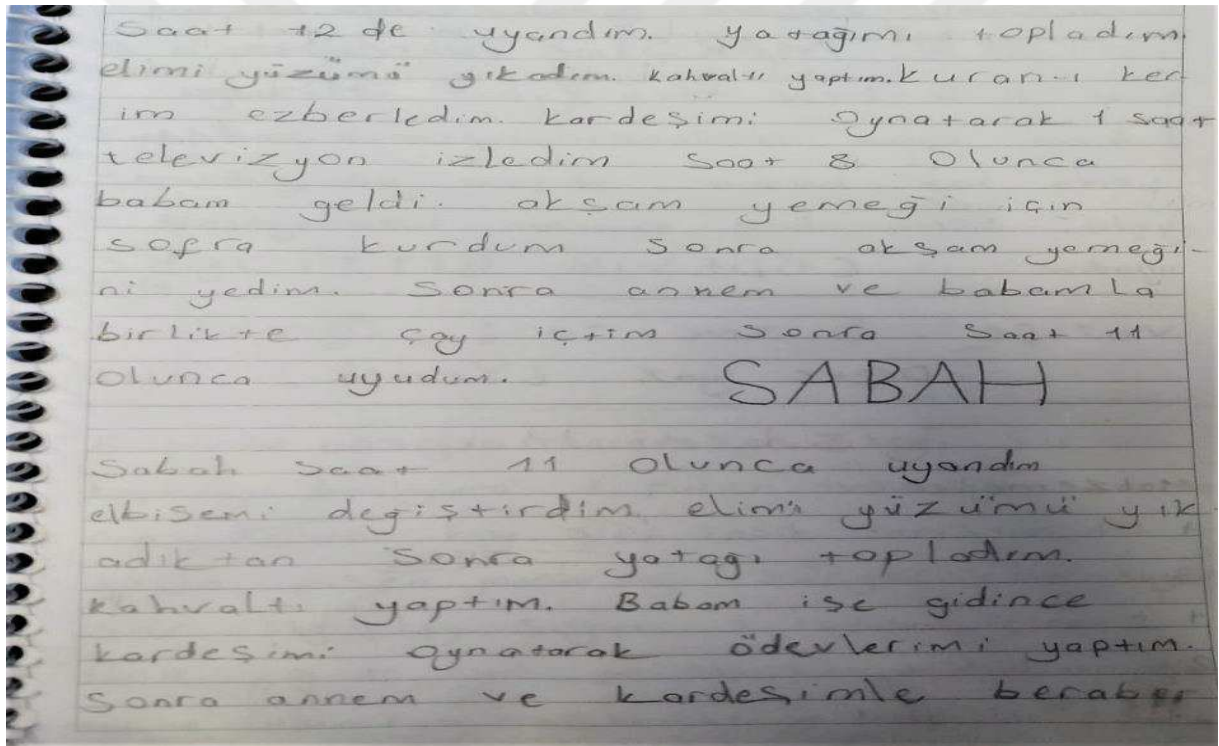 Saat 12 de uyandım. yatağımı topladım
elimi yüzümü yıkadım. kahvaltı yaptım. kuran-ı ker
im ezberledim. kardeşimi oynatarak 1 saat
televizyon izledim saat 8 olunca
babam geldi. akşam yemeği için
sofra kurdum sonra akşam yemeği-
ni yedim. sonra annem ve babamla
birlikte çay içtim sonra saat 11
olunca uyudum. SABAH
Sabah saat 11 olunca uyandım
elbisemi değiştirdim elimi yüzümü yık
adıktan sonra yatağı topladım.
kahvaltı yaptım. Babam işe gidince
kardeşimi oynatarak ödevlerimi yaptım.
Sonra annem ve kardeşimle beraber